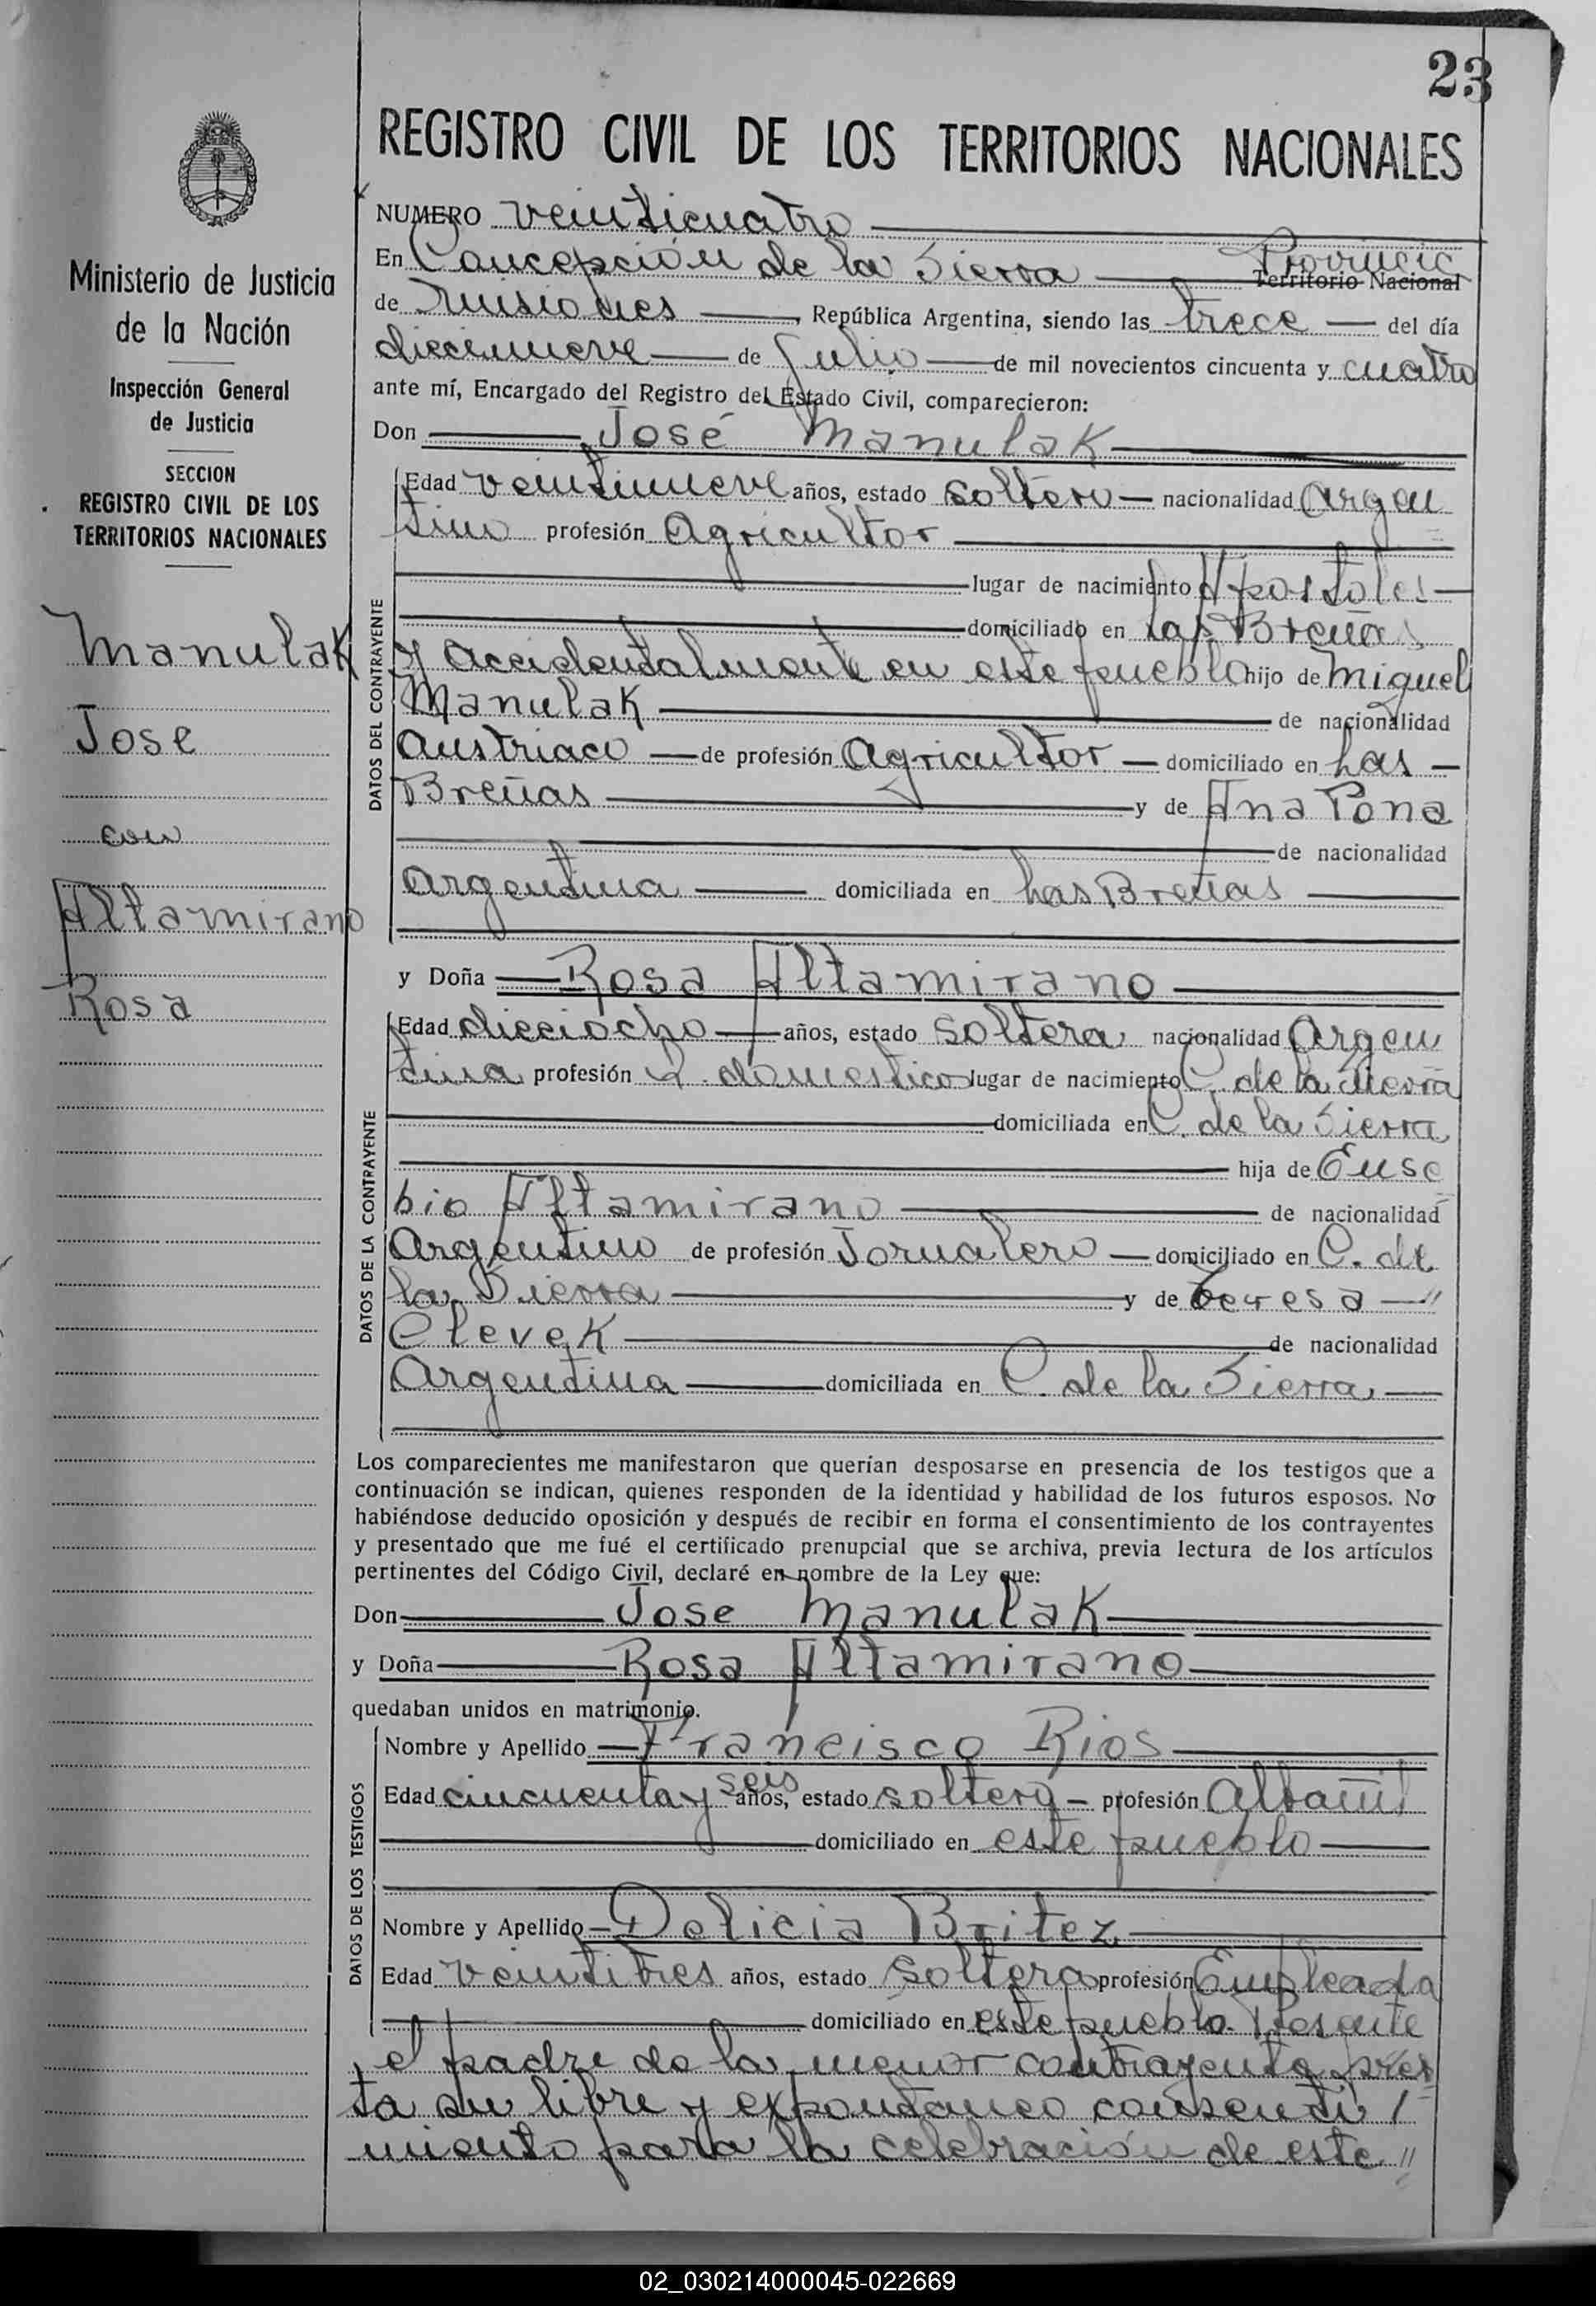 23
REGISTRO CIVIL DE LOS TERRITORIOS NACIONALES
Ministerio de Justicia
de la Nación
Inspección General
de Justicia
SECCION
REGISTRO CIVIL DE LOS
TERRITORIOS NACIONALES
Manulak
Jose
con
Altamirano
Rosa
NUMERO veinticuatro
En Concepción de la Sierra Provincia Territorio Nacional
de Misiones, República Argentina, siendo las trece del día
diecinueve de Julio de mil novecientos cincuenta y cuatro
ante mí, Encargado del Registro del Estado Civil, comparecieron:
Don José Manulak
DATOS DEL CONTRAYENTE
Edad veintinueve años, estado soltero nacionalidad Argen
tino profesión Agricultor
lugar de nacimiento Apostoles
domiciliado en Las Breñas
y accidentalmente en este pueblo hijo de Miguel
Manulak de nacionalidad
Austriaco de profesión Agricultor domiciliado en Las
Breñas y de Ana Pona
de nacionalidad
Argentina domiciliada en Las Breñas
y Doña Rosa Altamirano
DATOS DE LA CONTRAYENTE
Edad dieciocho años, estado soltera nacionalidad Argen
tina profesión Q. domesticos lugar de nacimiento C. de la Sierra
domiciliada en C. de la Sierra
hija de Euse
bio Altamirano de nacionalidad
Argentino de profesión Jornalero domiciliado en C. de
la Sierra y de Teresa "
Clevek de nacionalidad
Argentina domiciliada en C. de la Sierra
Los comparecientes me manifestaron que querían desposarse en presencia de los testigos que a
continuación se indican, quienes responden de la identidad y habilidad de los futuros esposos. No
habiéndose deducido oposición y después de recibir en forma el consentimiento de los contrayentes
y presentado que me fué el certificado prenupcial que se archiva, previa lectura de los artículos
pertinentes del Código Civil, declaré en nombre de la Ley que:
Don Jose Manulak
y Doña Rosa Altamirano
quedaban unidos en matrimonio.
DATOS DE LOS TESTIGOS
Nombre y Apellido Francisco Rios
Edad cincuenta y seis años, estado soltero profesión Albañil
domiciliado en este pueblo
Nombre y Apellido Delicia Britez
Edad veintitres años, estado soltera profesión Empleada
domiciliado en este pueblo. Presente
el padre de la menor contrayente, pres
ta su libre y expontaneo consenti /
miento para la celebración de este "
02_030214000045-022669